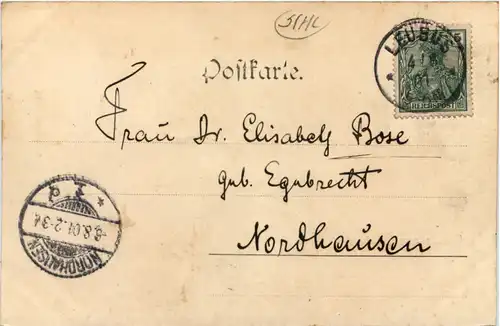 LEUBUS
5
REICHSPOST
Postkarte.
Frau Dr. Elisabeth Bose
geb. Egebrecht
Nordhausen
NORDHAUSEN
8.8.01.2-3N